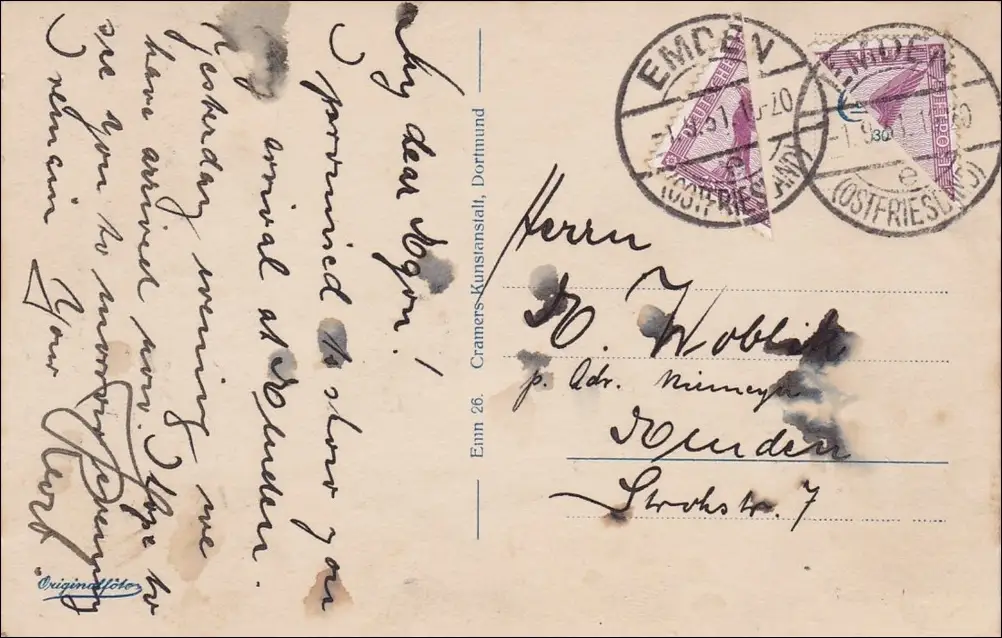 My dear Egon!
I promised to show you
arrival at Emden.
Yesterday evening we
have arrived now. I hope to
see you to morrow evening
I remain
Your
Originalfoto
Emn 26. Cramers Kunstanstalt, Dortmund
EMDEN
e
(OSTFRIESLAND)
EMDEN
30
e
(OSTFRIESLAND)
Herrn
E.
p. Adr. Niemeyer
Emden
Strohstr. 7